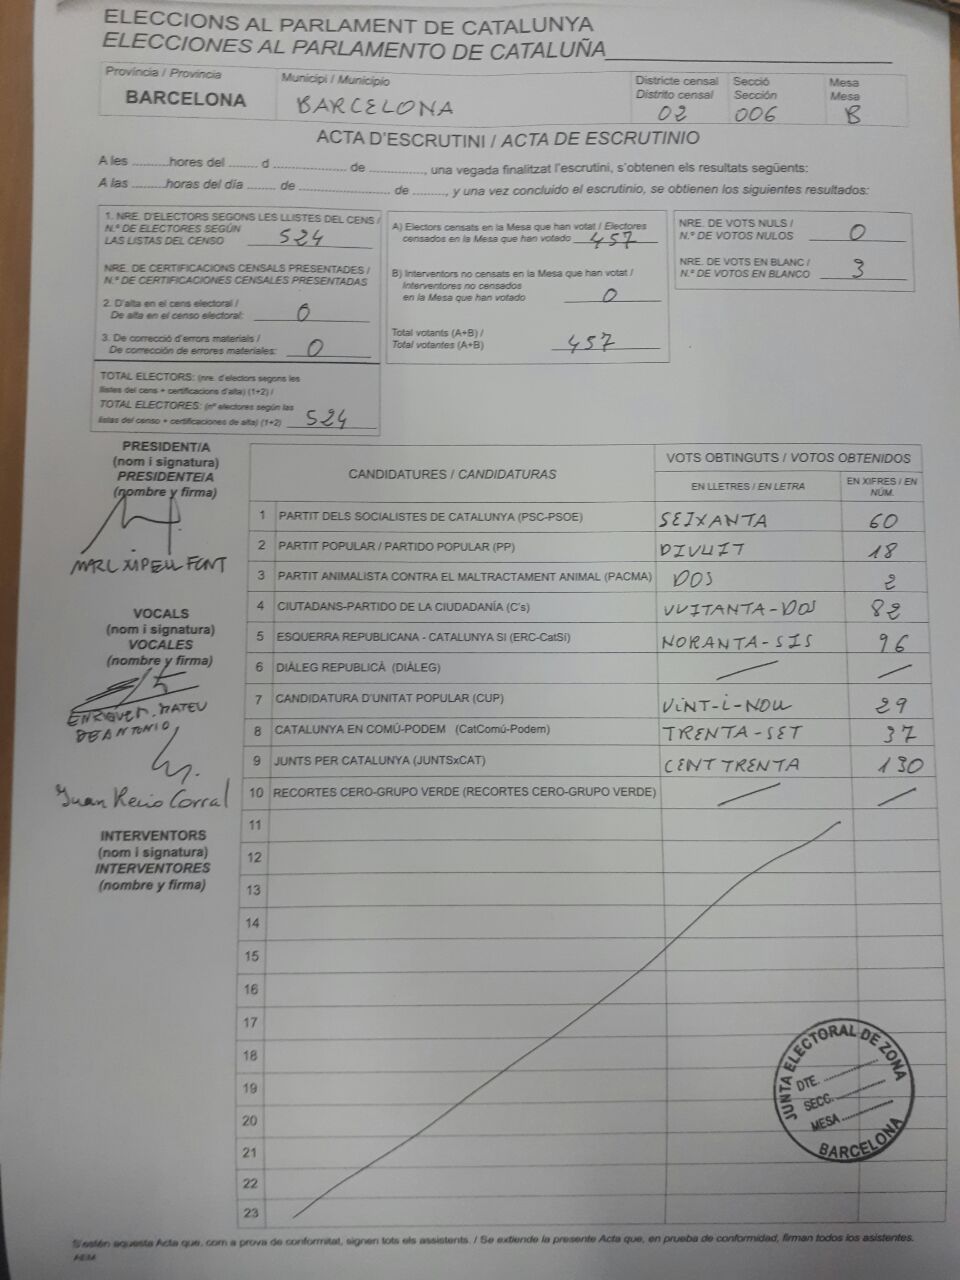 ELECCIONS AL PARLAMENT DE CATALUNYA
ELECCIONES AL PARLAMENTO DE CATALUÑA
Província / Provincia
BARCELONA
Municipi / Municipio
BARCELONA
Districte censal
Distrito censal
02
Secció
Sección
006
Mesa
Mesa
B
ACTA D'ESCRUTINI / ACTA DE ESCRUTINIO
A les ..........hores del ........ d .................... de ..............., una vegada finalitzat l'escrutini, s'obtenen els resultats següents:
A las .........horas del día ........ de .......................... de ........., y una vez concluido el escrutinio, se obtienen los siguientes resultados:
1. NRE. D'ELECTORS SEGONS LES LLISTES DEL CENS /
N.º DE ELECTORES SEGÚN
LAS LISTAS DEL CENSO 524
NRE. DE CERTIFICACIONS CENSALS PRESENTADES /
N.º DE CERTIFICACIONES CENSALES PRESENTADAS
2. D'alta en el cens electoral /
De alta en el censo electoral: 0
3. De correcció d'errors materials /
De corrección de errores materiales: 0
TOTAL ELECTORS: (nre. d'electors segons les
llistes del cens + certificacions d'alta) (1+2) /
TOTAL ELECTORES: (nº electores según las
listas del censo + certificaciones de alta) (1+2) 524
A) Electors censats en la Mesa que han votat / Electores
censados en la Mesa que han votado 457
B) Interventors no censats en la Mesa que han votat /
Interventores no censados
en la Mesa que han votado 0
Total votants (A+B) /
Total votantes (A+B) 457
NRE. DE VOTS NULS /
N.º DE VOTOS NULOS 0
NRE. DE VOTS EN BLANC /
N.º DE VOTOS EN BLANCO 3
PRESIDENT/A
(nom i signatura)
PRESIDENTE/A
(nombre y firma)
MARC XIPELL FONT
VOCALS
(nom i signatura)
VOCALES
(nombre y firma)
ENRIQUE M. MATEU
DE ANTONIO
Juan Recio Corral
INTERVENTORS
(nom i signatura)
INTERVENTORES
(nombre y firma)
CANDIDATURES / CANDIDATURAS
VOTS OBTINGUTS / VOTOS OBTENIDOS
EN LLETRES / EN LETRA
EN XIFRES / EN
NÚM.
1 PARTIT DELS SOCIALISTES DE CATALUNYA (PSC-PSOE) SEIXANTA 60
2 PARTIT POPULAR / PARTIDO POPULAR (PP) DIVUIT 18
3 PARTIT ANIMALISTA CONTRA EL MALTRACTAMENT ANIMAL (PACMA) DOS 2
4 CIUTADANS-PARTIDO DE LA CIUDADANÍA (C's) VUITANTA-DOS 82
5 ESQUERRA REPUBLICANA - CATALUNYA SI (ERC-CatSí) NORANTA-SIS 96
6 DIÀLEG REPUBLICÀ (DIÀLEG)
7 CANDIDATURA D'UNITAT POPULAR (CUP) VINT-I-NOU 29
8 CATALUNYA EN COMÚ-PODEM (CatComú-Podem) TRENTA-SET 37
9 JUNTS PER CATALUNYA (JUNTSxCAT) CENT TRENTA 130
10 RECORTES CERO-GRUPO VERDE (RECORTES CERO-GRUPO VERDE)
11
12
13
14
15
16
17
18
19
20
21
22
23
JUNTA ELECTORAL DE ZONA
DTE. ............
SECC. ............
MESA ............
BARCELONA
S'estén aquesta Acta que, com a prova de conformitat, signen tots els assistents. / Se extiende la presente Acta que, en prueba de conformidad, firman todos los asistentes.